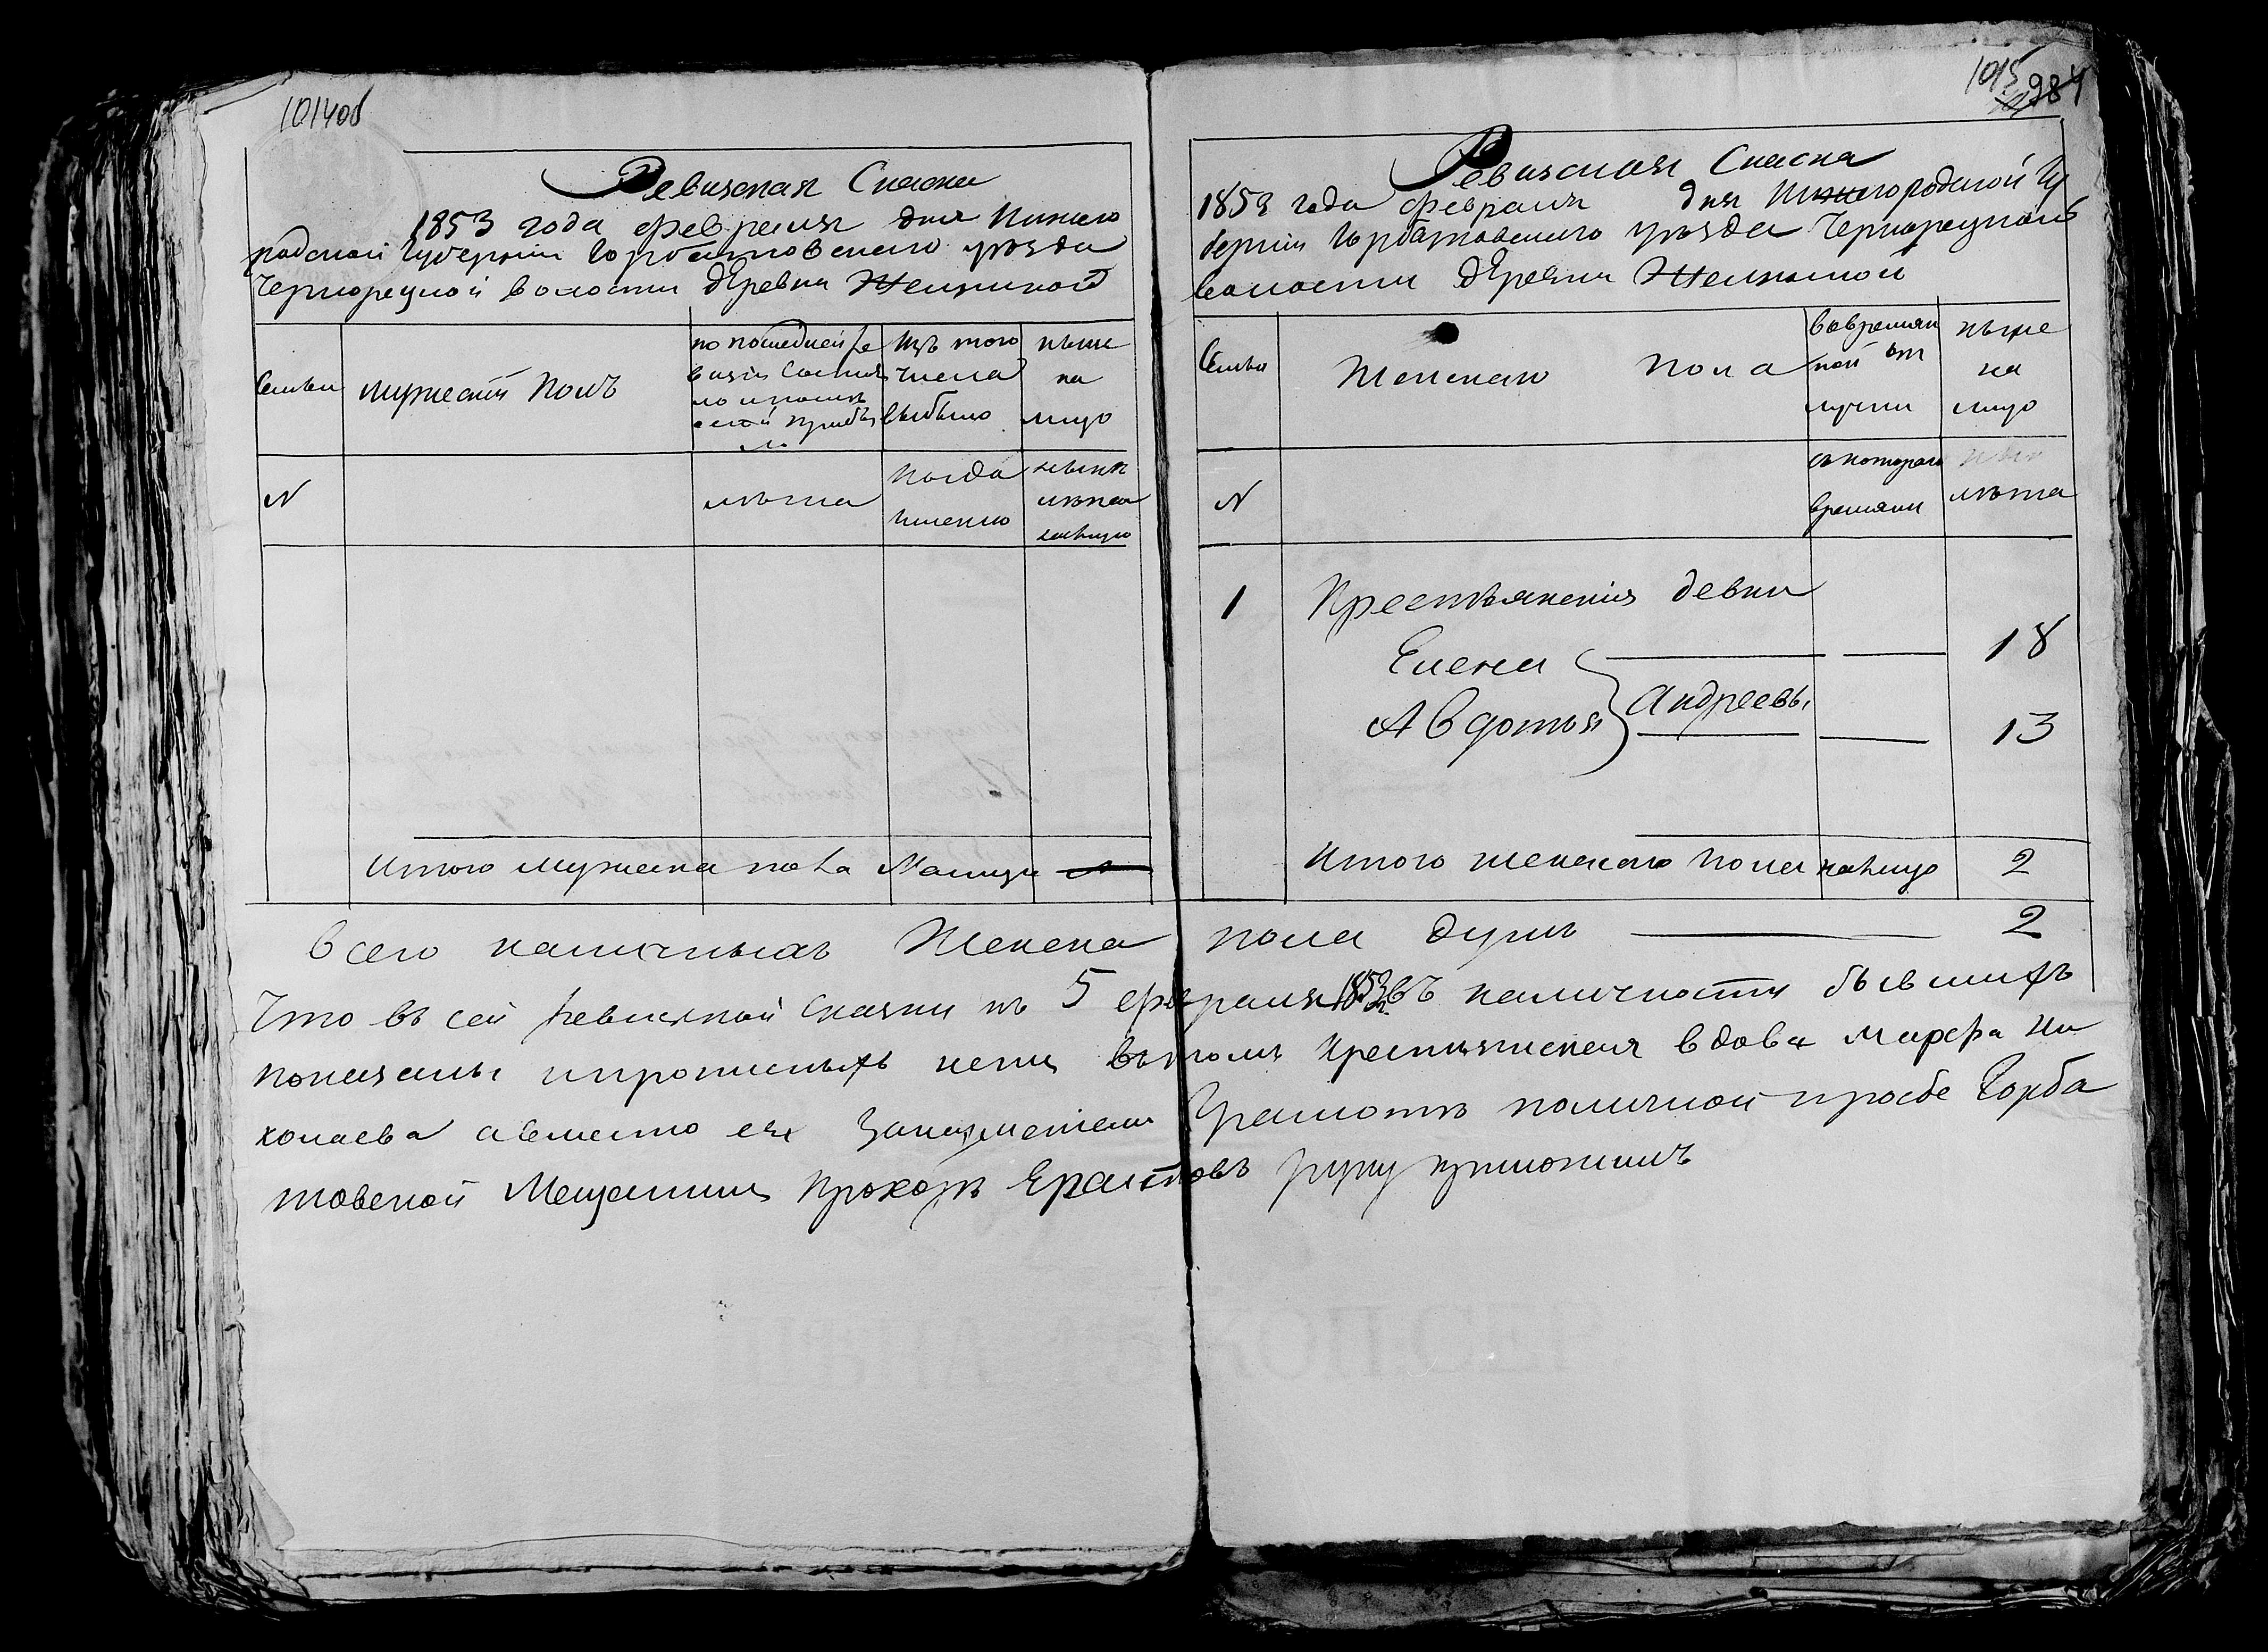 1014об
Ревизская Сказка
1853 года февраля дня Нижего
родской Губернiи Горбатовскаго уезда
Чернорецкой волости деревни Желниной
Семьи
мужескiй Полъ
по последней Ре
визiи Состоя
ло и после
оной прибы
ло
Изъ того
числа
выбыло
ныне
на
лицо
N
лета
когда
именно
ныне
лета
налицо
Итого мужеска пола Налицо
1015
984
Ревизская Сказка
1853 года февраля дня Нижегородской Гу
бернiи Горбатовскаго уезда Чернорецкой
волости деревни Желниной
Семьи
Женскаго Пола
вовремян
ной от
лучки
ныне
на
лицо
N
съ котораго
времяни
лета
1 Крестьянскiя девки
Елена 18
Андреевы
Авдотья 13
Итого женскаго пола налицо 2
Всего наличныхъ Женска пола душъ 2
Что въ сей Ревизской Сказки къ 5 февраля 1853 въ наличности бывшихъ
показаны и прописныхъ нетъ въ томъ крестьянская вдова Марфа Ни
колаева а вместо ея Занеуменiемъ Грамоте по личной прозбе Горба
товской Мещанинъ Прохоръ Ерастовъ руку приложилъ